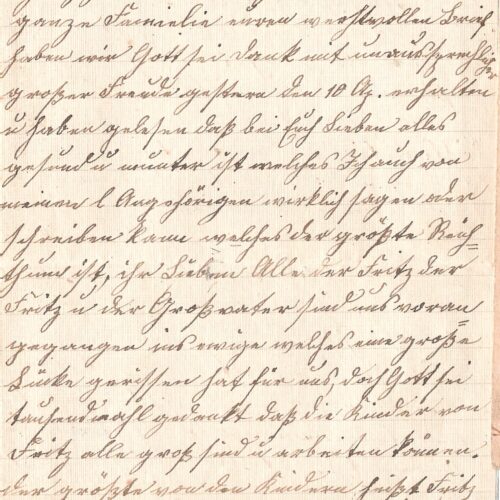 ganze Famielie euren werthvollen Brief
haben wir Gott sei dank mit unaussprechlig
großer Freude gestern den 10 Ap. erhalten
u haben gelesen daß bei Euch Lieben alles
gesund u munter ist welches Ich auch von
meinen l Angehörigen wirklich sagen oder
schreiben kann welches der größte Reich=
thum ist, ihr Lieben Alle der Fritz der
Fritz u der Großvater sind uns voran
gegangen ins ewige welches eine große
Lücke gerissen hat für uns, doch Gott sei
tausendmahl gedankt daß die Kinder von
Fritz alle groß sind u arbeiten können.
der größte von den Kindern heißt Fritz